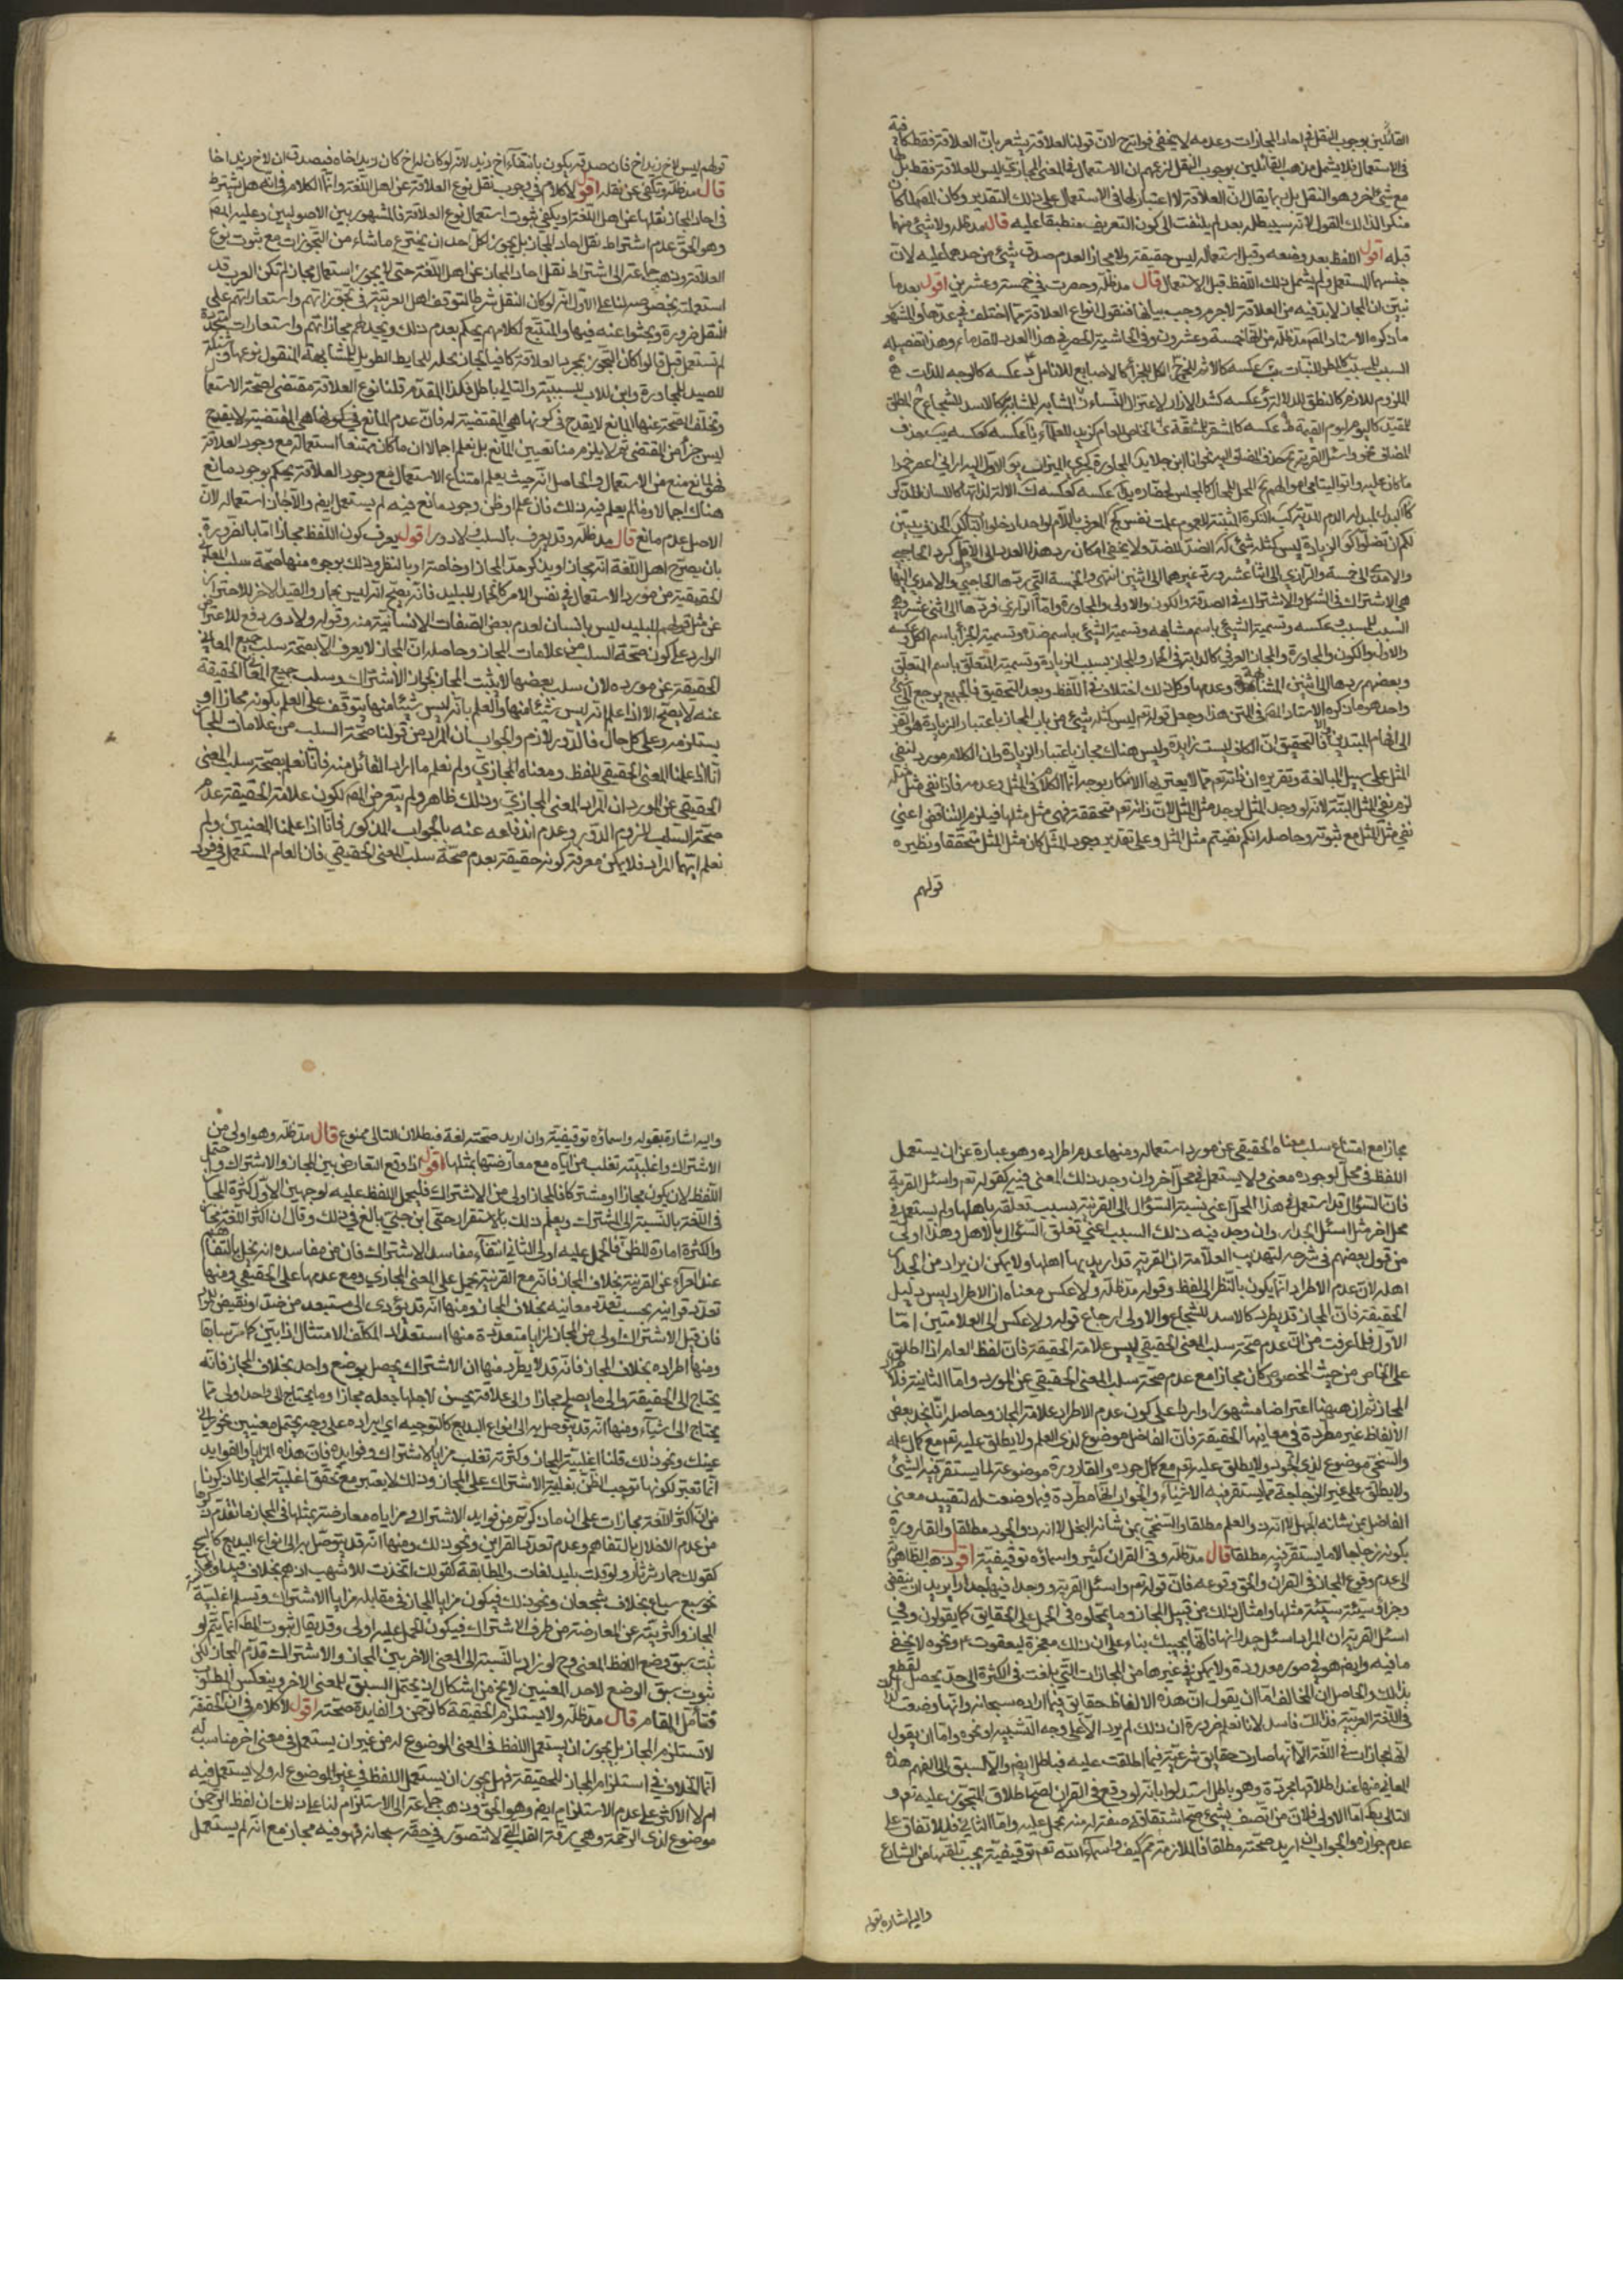 القائلين بوجوب النقل في احاد المجازات وعدمه لا يخفى فوايد ح لان قولنا العلاقة يشعر بان العلاقة فقط كافية
في الاستعمال فلا يشمل مذهب القائلين بوجوب النقل لزعمهم ان الاستعمال في المعنى المجازي ليس للعلاقة فقط بل لها
مع شئ اخر وهو النقل بل ربما يقال ان العلاقة لا اعتبار لها في الاستعمال على ذلك التقدير وكان المصنف لما كان
منكرا لذلك القول لانه سيبطله بعد لم يلتفت الى كون التعريف منطبقا عليه قال مد ظله ولا شئ منها
قبله اقول اللفظ بعد وضعه وقبل استعماله ليس حقيقة ولا مجازا لعدم صدق شئ من حدهما عليه لان
جنسهما المستعمل ولم يشمل ذلك اللفظ قبل الاستعمال قال مد ظله وحصرت في خمسة وعشرين اقول بعد ما
تبين ان المجاز لا بد فيه من العلاقة لا جرم وجب بيانها فنقول انواع العلاقة مما اختلف في عدها والمشهور
ما ذكره الاستاد المصنف مد ظله من انها خمسة وعشرون وفي الحاشية الحصر في هذا العدد للقدماء وهذا تفصيله
السبب للمسبب كالمطر للنبات عكسه كالاثم للخمر الكل للجزء كالاصابع للانامل عكسه كالوجه للذات
الملزوم للازم كالنطق للدلالة وعكسه كشد الازار لاعتزال النساء المشابه للمشابه كالاسد للشجاع المطلق
للمقيد كاليوم ليوم القيمة عكسه كالمشفر للشفة الخاص للعام كزيد للعلماء عكسه كعكسه حذف
المضاف نحو واسئل القرية حذف المضاف اليه نحو انا ابن جلا المجاورة كجري الميزاب الاول اليه اراني اعصر خمرا
ما كان عليه واتوا اليتامى اموالهم المحل للحال كالمجلس لحضاره عكسه كعكسه الالة لذيها كاللسان للذكر
لكم ان تضلوا الزيادة ليس كمثله شئ الضد للضد ولا يخفى امكان رد هذا العدد الى الاقل كرد الحاجبي
والامدي الى خمسة والرازي الى اثنا عشر ورد غيرهما الى اثنين انتهى والخمسة التي ردها الحاجبي والامدي اليها
هي الاشتراك في الشكل والاشتراك في الصفة والكون والاول والمجاورة واما الرازي فردها الى اثنى عشر وهي
السبب للمسبب وعكسه وتسمية الشئ باسم مشابهه وتسمية الشئ باسم ضده وتسمية الجزء باسم الكل وعكسه
والاول والكون والمجاورة والمجاز العرفي كالدابة في الحمار والمجاز بسبب الزيادة وتسمية المتعلق باسم المتعلق
وبعضهم ردها الى اثنين المشابهة وعدمها وكل ذلك اختلاف في اللفظ وبعد التحقيق فالجميع يرجع الى شئ
واحد هو ما ذكره الاستاد المصنف في المتن هذا وجعل قوله تع ليس كمثله شئ من باب المجاز باعتبار الزيادة هو اقرب
الى افهام المبتدئين والا فالتحقيق ان الكاف ليست زايدة وليس هناك مجاز باعتبار الزيادة وان الكلام مورد لنفي
المثل على سبيل المبالغة وتقريره ان ذاته تع مما لا يعتريها الانكار بوجه انما الكلام في المثل وعدمه فاذا نفي مثل مثله
لزم نفي المثل البتة لانه لو وجد المثل لوجد مثل المثل لان ذاته تع متحققة فهي مثل مثلها فيلزم التناقض اعني
نفي مثل المثل مع ثبوته وحاصله انكم نفيتم مثل المثل وعلى تقدير وجود المثل كان مثل المثل متحققا ونظيره
قولهم
قولهم ليس لاخ زيد اخ فان صدقه يكون بانتفاء اخ زيد لانه لو كان له اخ كان زيد اخاه فيصدق ان لاخ زيد اخا
قال مد ظله ويكفي عن نقله اقول لا كلام في وجوب نقل نوع العلاقة عن اهل اللغة وانما الكلام في انه هل يشترط
في احاد المجاز نقلها عن اهل اللغة او يكفي ثبوت استعمال نوع العلاقة فالمشهور بين الاصوليين وعليه المصنف
وهو الحق عدم اشتراط نقل احاد المجاز بل يجوز لكل احد ان يخترع ما شاء من التجوزات مع ثبوت نوع
العلاقة وذهب جماعة الى اشتراط نقل احاد المجاز عن اهل اللغة حتى لا يجوز استعمال مجاز لم تكن العرب قد
استعملته بخصوصه لنا على الاول انه لو كان النقل شرطا لتوقف اهل العربية في تجوزاتهم واستعاراتهم على
النقل ضرورة وبحثوا عنه فيها والمتتبع لكلامهم يحكم بعدم ذلك ويجد لهم مجازاتهم واستعارات متجددة
لم تستعمل قبل قالوا كان التجوز بمجرد العلاقة كافيا لجاز نخلة للحايط الطويل للمشابهة المنقول نوعها وشبكة
للصيد للمجاورة وابن للاب للسببية والتالي باطل فكذا المقدم قلنا نوع العلاقة مقتضى لصحة الاستعمال
وتخلف الصحة عنها لمانع لا يقدح في كونها هي المقتضية له فان عدم المانع في كونها هي المقتضية لا يقدح
ليس جزأ من المقتضى ثم لا يلزم منا تعيين المانع بل نعلم اجمالا ان ما كان ممتنعا استعماله مع وجود العلاقة
فهو لمانع منع من الاستعمال والحاصل انه حيث يعلم امتناع الاستعمال مع وجود العلاقة يحكم بوجود مانع
هناك اجمالا وما لم يعلم فيه ذلك فان علم او ظن وجود مانع فيه لم يستعمل ايضا والا جاز استعماله لان
الاصل عدم مانع قال مد ظله وقد يعرف بالسلب ولا دور اقول يعرف كون اللفظ مجازا اما بالضرورة
بان يصرح اهل اللغة انه مجاز او يذكر حد المجاز او خاصته او بالنظر وذلك بوجوه منها صحة سلب المعنى
الحقيقية من مورد الاستعمال في نفس الامر كالحمار للبليد فانه يصح انه ليس بحمار والقيد الاخر للاحتراز
عن مثل قولهم للبليد ليس بانسان لعدم بعض الصفات الانسانية منه وقوله ولا دور دفع للاعتراض
الوارد على كون صحة السلب من علامات المجاز وحاصله ان المجاز لا يعرف الا بصحة سلب جميع المعاني
الحقيقية عن مورده لان سلب بعضها لا يثبت المجاز لجواز الاشتراك وسلب جميع المعاني الحقيقة
عنه لا يصح الا اذا علم انه ليس شيئا منها والعلم بانه ليس شيئا منها يتوقف على العلم بكونه مجازا او
يستلزمه وعلى كل حال فالدور لازم والجواب ان المراد من قولنا صحة السلب من علامات المجاز
انا اذا علمنا المعنى الحقيقي للفظ ومعناه المجازي ولم نعلم ما اراد القائل منه فانا نعلم بصحة سلب المعنى
الحقيقي عن المورد ان المراد المعنى المجازي وذلك ظاهر ولم يتعرض المصنف لكون علامة الحقيقة عدم
صحة السلب للزوم الدور وعدم اندفاعه عنه بالجواب المذكور فانا اذا علمنا المعنيين ولم
نعلم ايهما المراد فلا يمكن معرفة كونه حقيقة بعدم صحة سلب المعنى الحقيقي فان العام المستعمل في فرد
مجاز مع امتناع سلب معناه الحقيقي عن مورد استعماله ومنها عدم اطراده وهو عبارة عن ان يستعمل
اللفظ في محل لوجود معنى ولا يستعمل في محل آخر وان وجد ذلك المعنى فيه كقوله تع واسئل القرية
فان السؤال قد استعمل في هذا المحل اعني نسبة السؤال الى القرية بسبب تعلقه باهلها ولم يستعمل في
محل اخر مثل اسئل الجدار وان وجد فيه ذلك السبب اعني تعلق السؤال بالاهل وهذا اولى
من قول بعضهم في شرحه لتهذيب العلامة ان القرية قد اريد بها اهلها ولا يمكن ان يراد من الجدار
اهله لان عدم الاطراد انما يكون بالنظر الى اللفظ وقوله مد ظله ولا عكس معناه ان الاطراد ليس دليل
الحقيقة فان المجاز قد يطرد كالاسد للشجاع والاولى ارجاع قوله ولا عكس الى العلامتين اما
الاول فلما عرفت من ان عدم صحة سلب المعنى الحقيقي ليس علامة الحقيقة فان لفظ العام اذا اطلق
على الخاص من حيث الخصوص كان مجازا مع عدم صحة سلب المعنى الحقيقي عن المورد واما الثانية فلاطراد
المجاز ثم ان ههنا اعتراضا مشهورا واردا على كون عدم الاطراد علامة المجاز وحاصله انا نجد بعض
الالفاظ غير مطردة في معانيها الحقيقة فان الفاضل موضوع لذي العلم ولا يطلق عليه تع مع كمال علمه
والسخي موضوع لذي الجود ولا يطلق عليه تع مع كمال جوده والقارورة موضوعة لما يستقر فيه الشئ
ولا يطلق على غير الزجاجة مما يستقر فيه الاشياء والجواب انها مطردة فيما وضعت له لتقييد معنى
الفاضل بمن شانه الجهل لا ذو العلم مطلقا والسخي بمن شانه البخل لا ذو الجود مطلقا والقارورة
بكونه زجاجا لا ما يستقر فيه مطلقا قال مد ظله وفي القران كثير واسماؤه توقيفية اقول ذهب الظاهرية
الى عدم وقوع المجاز في القران والحق وقوعه فان قوله تع واسئل القرية ووجدا فيها جدارا يريد ان ينقض
وجزاؤ سيئة سيئة مثلها وامثال ذلك من قبيل المجاز وما تمحلوه في الحمل على الحقايق كما يقولون في
اسئل القرية ان المراد اسئل جدرانها فانها تجيبك بناء على ان ذلك معجزة ليعقوب ع ونحوه لا يخفى
ما فيه وايضا هو في صور معدودة ولا يمكن في غيرها من المجازات التي بلغت في الكثرة الى حد يحصل القطع
بذلك والحاصل ان المخالف اما ان يقول ان هذه الالفاظ حقايق فيما اراده سبحانه وانها وضعت له
في اللغة العربية فذلك فاسد لانا نعلم ضرورة ان ذلك لم يرد الا على وجه التشبيه او نحوه واما ان يقول
انها مجازات في اللغة الا انها صارت حقايق شرعية فيما اطلقت عليه فباطل ايضا والا لسبق الى الفهم هذه
المعاني منها عند اطلاقها مجردة وهو باطل استدلوا بانه لو وقع في القران لصح اطلاق المتجوز عليه تع و
التالي بط اما الاولى فلان من اتصف بشئ صح اشتقاق صفة له منه تحمل عليه واما الثاني فللاتفاق على
عدم جوازه والجواب ان اريد صحته مطلقا فالملازمة مم كيف واسماء الله تع توقيفية يجب تلقيها من الشارع
واليه اشاره بقوله
واليه اشارة بقوله واسماؤه توقيفية وان اريد صحته لغة فبطلان التالي ممنوع قال مد ظله وهو اولى من
الاشتراك واغلبيته تغلب مزاياه مع معارضتها بمثلها اقول اذا وقع التعارض بين المجاز والاشتراك واحتمل
اللفظ لان يكون مجازا او مشتركا فالمجاز اولى من الاشتراك فليحمل اللفظ عليه لوجهين الاول كثرة المجاز
في اللغة بالنسبة الى الاشتراك ويعلم ذلك بالاستقرار حتى ابن جني بالغ في ذلك وقال ان اكثر اللغة مجاز
والكثرة امارة للظن فالحمل عليه اولى الثاني انتفاء مفاسد الاشتراك فان من مفاسده انه يخل بالتفاهم
عند اعراءه عن القرينة بخلاف المجاز فانه مع القرينة يحمل على المعنى المجازي ومع عدمها على الحقيقي ومنها
تعدد قراينه بحسب تعدد معانيه بخلاف المجاز ومنها انه قد يؤدى الى مستبعد من ضد او نقيض للمراد
فان قيل الاشتراك اولى من المجاز لمزايا متعددة منها استعداد المكلف الامتثال اذا بين كما مر سابقا
ومنها اطراده بخلاف المجاز فانه قد لا يطرد ومنها ان الاشتراك يحصل بوضع واحد بخلاف المجاز فانه
يحتاج الى الحقيقة والى ما يصلح مجازا والى علاقة يحسن لاجلها جعله مجازا وما يحتاج الى واحد اولى مما
يحتاج الى اشياء ومنها انه قد يتوصل به الى انواع البديع كالتوجيه اي ايراده على وجه يحتمل معنيين نحو راى
عينك ونحو ذلك قلنا اغلبية المجاز وكثرته تغلب مزايا الاشتراك وفوايده فان هذه المزايا والفوايد
انما تعتبر لكونها توجب الظن بغلبية الاشتراك على المجاز وذلك لا يعتبر مع تحقق اغلبية المجاز لما ذكرنا
من ان اكثر اللغة مجازات على ان ما ذكرتم من فوايد الاشتراك ومزاياه معارضة بمثلها في المجاز مما تقدم ذكرها
من عدم الاخلال بالتفاهم وعدم تعدد القراين ونحو ذلك ومنها انه قد يتوصل به الى انواع البديع كالسجع
كقولك حمار ثرثار ولو قلت بليد لفات والمطابقة كقولك اتخذت للاشهب ادهم بخلاف قيد
نحو سبع سباع بخلاف شجعان ونحو ذلك فيكون مزايا المجاز في مقابلة مزايا الاشتراك ويسلم اغلبية
المجاز واكثريته عن المعارضة من طرف الاشتراك فيكون الحمل عليه اولى وقد يقال ثبوت المط انما يتم لو
ثبت سبق وضع اللفظ لمعنى وح لو نزل بالنسبة الى المعنى الاخر بين المجاز والاشتراك قدم المجاز لكن
ثبوت سبق الوضع لاحد المعنيين لا يخ من اشكال اذ يحتمل السبق للمعنى الاخر وينعكس المطلب
فتأمل المقام قال مد ظله ولا يستلزم الحقيقة كالرحمن والفايدة صحته اقول لا كلام في ان الحقيقة
لا تستلزم المجاز بل يجوز ان يستعمل اللفظ في المعنى الموضوع له من غير ان يستعمل في معنى اخر مناسب له
انما الخلاف في استلزام المجاز للحقيقة فهل يجوز ان يستعمل اللفظ في غير الموضوع له ولا يستعمل فيه
ام لا الاكثر على عدم الاستلزام ايضا وهو الحق وذهب جماعة الى الاستلزام لنا على ذلك ان لفظ الرحمن
موضوع لذي الرحمة وهي رقة القلب التي لا تتصور في حقه سبحانه فهو فيه مجاز مع انه لم يستعمل